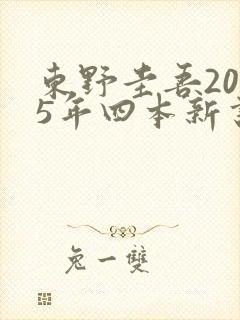 東野圭吾20
5年四本新
兔一雙